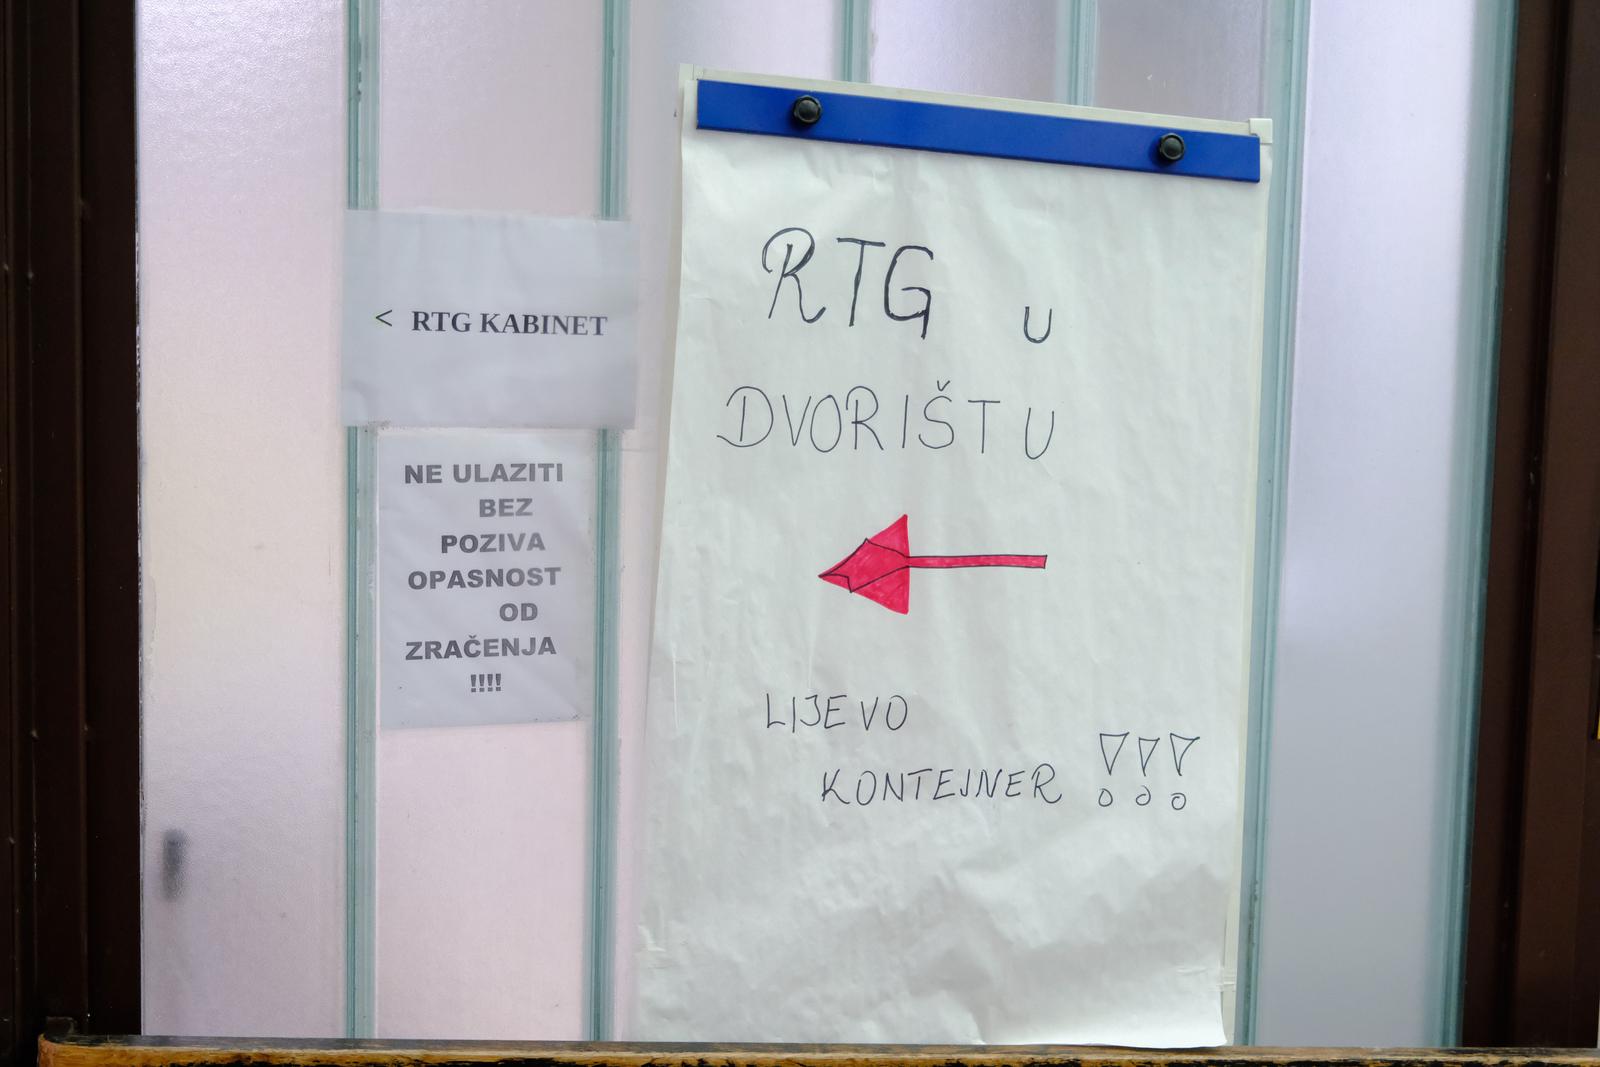 < RTG KABINET
NE ULAZITI
BEZ
POZIVA
OPASNOST
OD
ZRAČENJA
!!!!
RTG U
DVORIŠTU
LIJEVO
KONTEJNER !!!